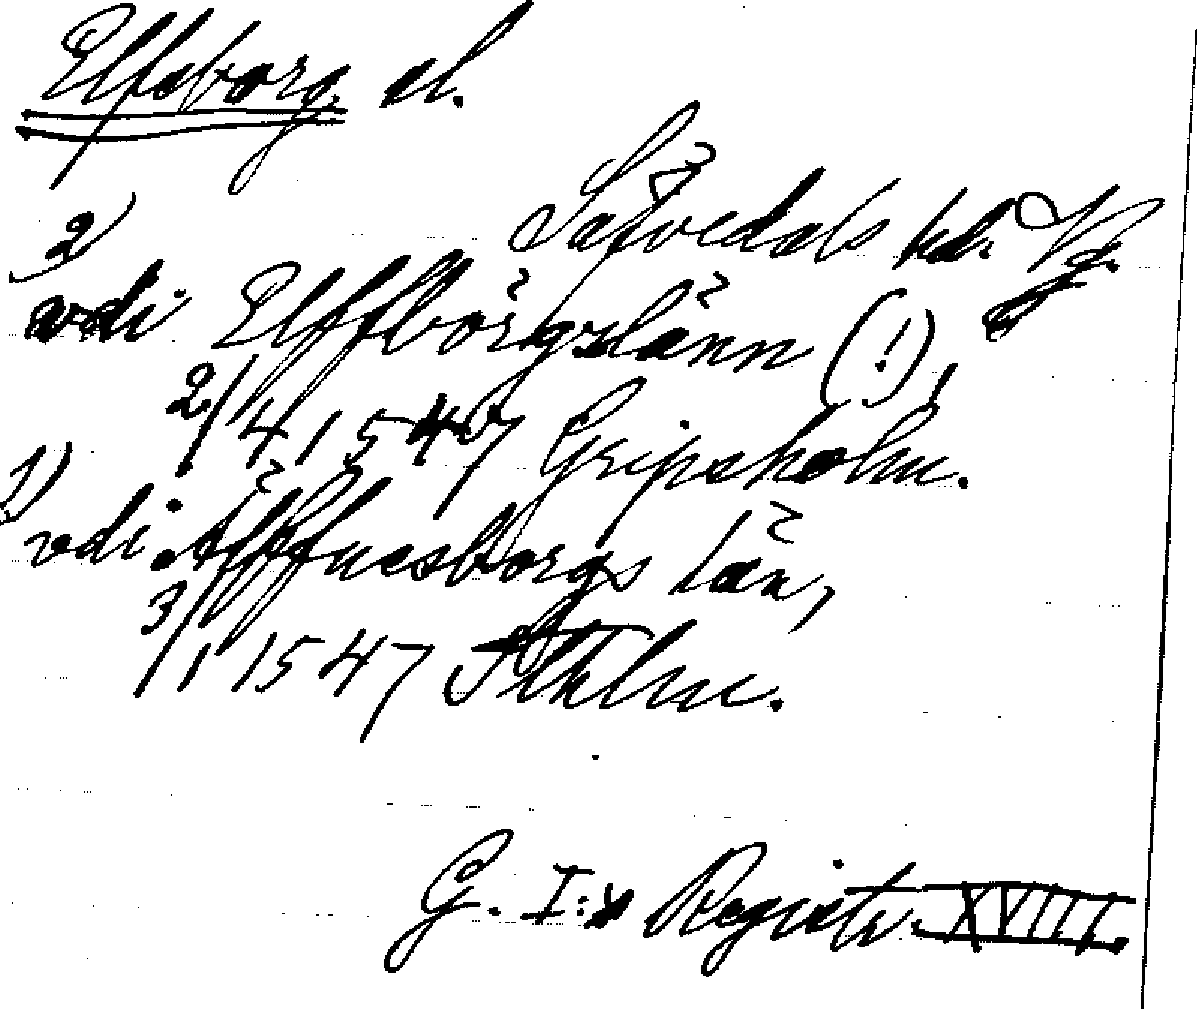 Elfsborg sl.
Sävedals hd. Vg.
2)
vdi Elffborgzlänn (!),
2/4 1547 Gripsholm.
1)
vdi Älffuesborgs län,
3/1 1547 Sthlm.
G. I:s Registr. XVIII.